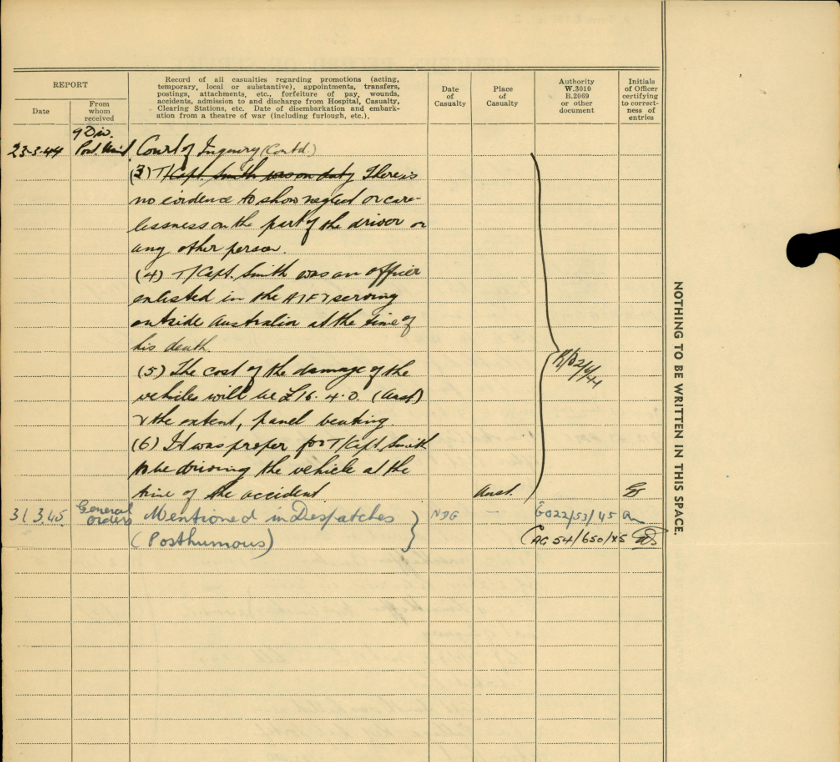 REPORT
Date
From whom received
Record of all casualties regarding promotions (acting,
temporary, local or substantive), appointments, transfers,
postings, attachments, etc., forfeiture of pay, wounds,
accidents, admission to and discharge from Hospital, Casualty,
Clearing Stations, etc. Date of disembarkation and embark-
ation from a theatre of war (including furlough, etc.).
Date of Casualty
Place of Casualty
Authority W.3010 B.2069 or other document
Initials of Officer certifying to correct-ness of entries
9 Div.
23-3-44 Court of Inquiry (Contd.)
(3) T/Capt. Smith was on duty There is
no evidence to show neglect or care-
lessness on the part of the driver or
any other person.
(4) T/Capt. Smith was an officer
enlisted in the A.I.F. serving
outside Australia at the time of
his death.
(5) The cost of the damage of the
vehicles will be £16.4.0. (Aust)
& the extent, panel beating.
(6) It was proper for T/Capt. Smith
to be driving the vehicle at the
time of the accident Aust.
31.3.45. General Orders Mentioned in Despatches NDG —
(Posthumous) AG 54/650/45
NOTHING TO BE WRITTEN IN THIS SPACE.